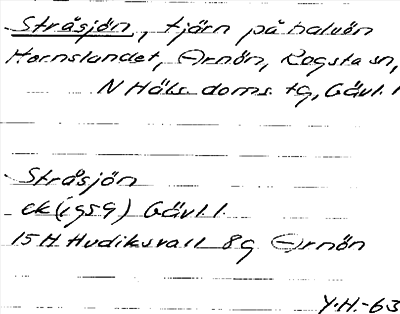 Stråsjön, tjärn på halvön
Hornslandet, Arnön, Rogsta sn,
N Häls. doms. tg, Gävl. l
Stråsjön
ek (1959) Gävl. l.
15 H Hudiksvall 8g Arnön
Y.H.-63